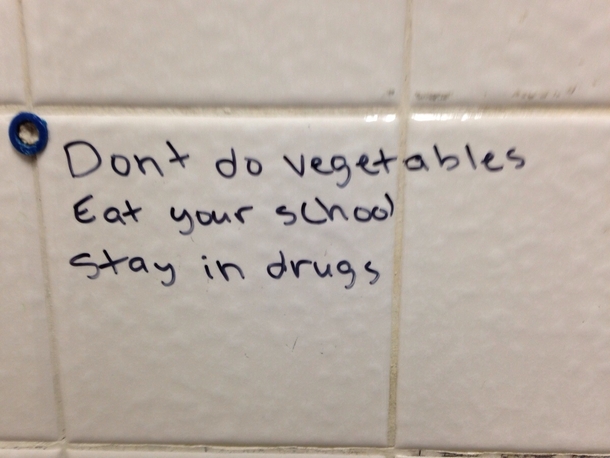 Dont do vegetables
Eat your school
Stay in drugs